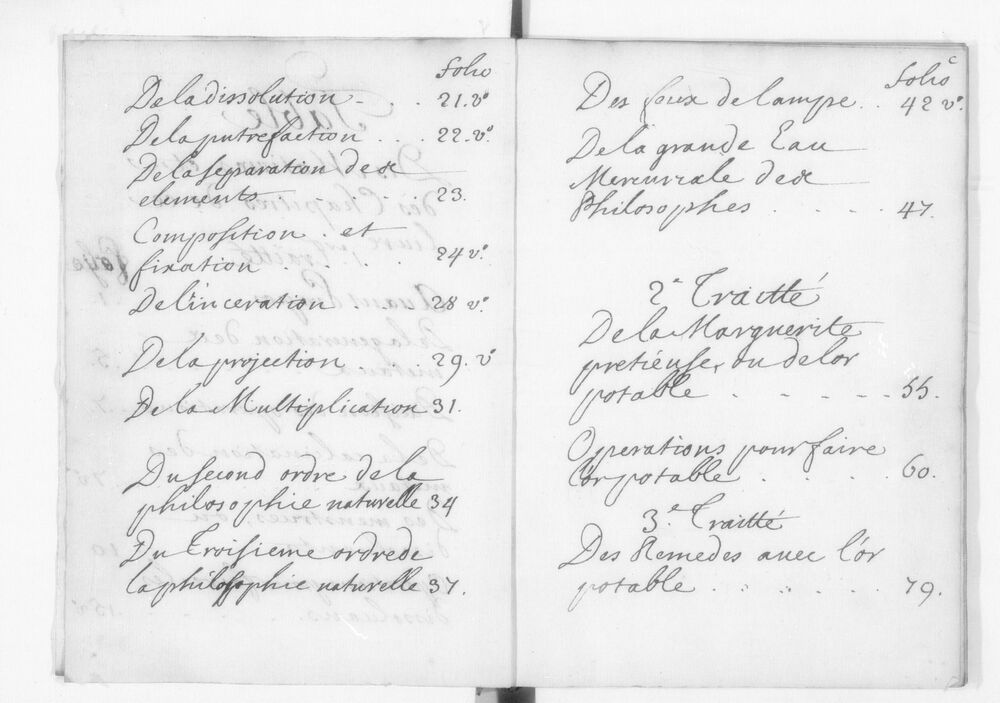 folio
De la dissolution . . 21. vº
De la putrefaction . . . 22. vº
De la separation des
elements . . . 23.
Composition et
fixation . . . 24 vº
De l'inceration . . . 28 vº
De la projection . 29. vº
De la Multiplication 31.
Du second ordre de la
philosophie naturelle 34
Du Troisieme ordre de
la philosophie naturelle 37.
folio
Des feux de lampe . . 42 vº
De la grande Eau
Mercuriale des
Philosophes . . . . 47.
2e Traitté
De la Marguerite
pretieuse, ou de lor
potable . . . . . 55.
Operations pour faire
l'or potable . . . . 60.
3e Traitté
Des Remedes avec l'or
potable . . . . . 79.